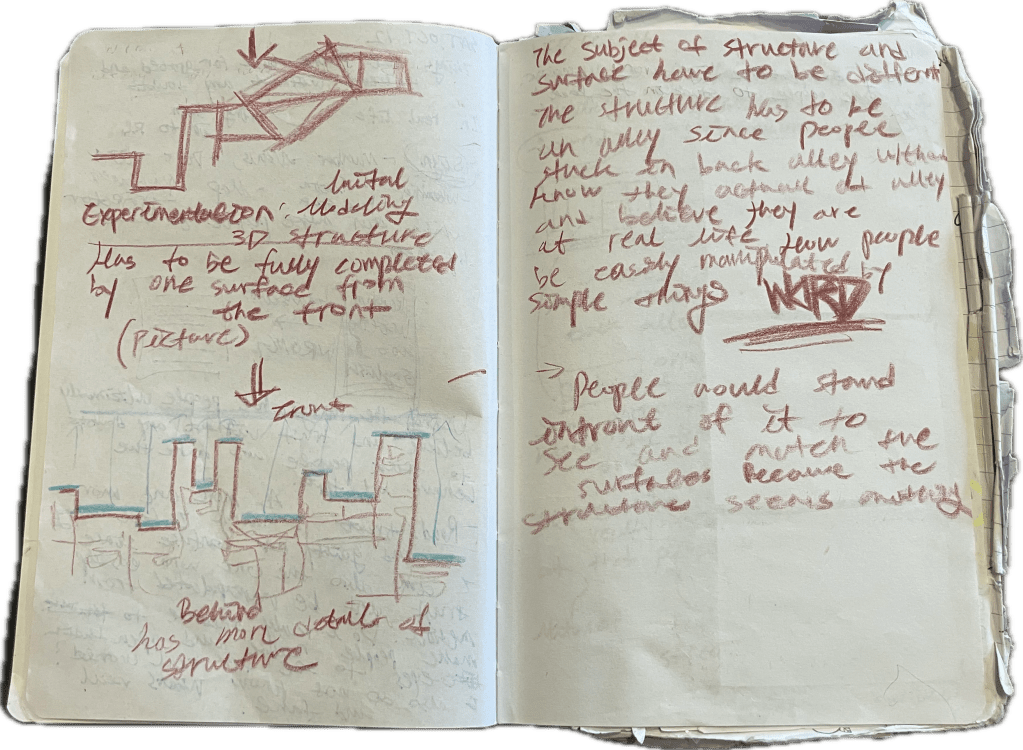 Inital
Experimentation: Modeling
3D structure
Has to be fully completed
by one surface from
the front
(picture)
front
Behind
has more details of
structure
The subject of structure and
surface have to be different
The structure has to be
an alley since people
stuck in back alley without
know they at alley
and believe they are
at real life. How people
be easily manipulated by
simple things WORD
People would stand
infront of it to
see and match the
surfaces because the
structure seems